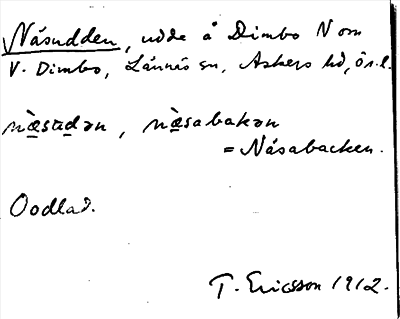 Näsudden, udde å Dimbo N om
V. Dimbo, Lännäs sn, Askers hd, Ör. l.
næ̀sudən, næ̀sabakən
= Näsabacken.
Oodlad.
T. Ericsson 1912.